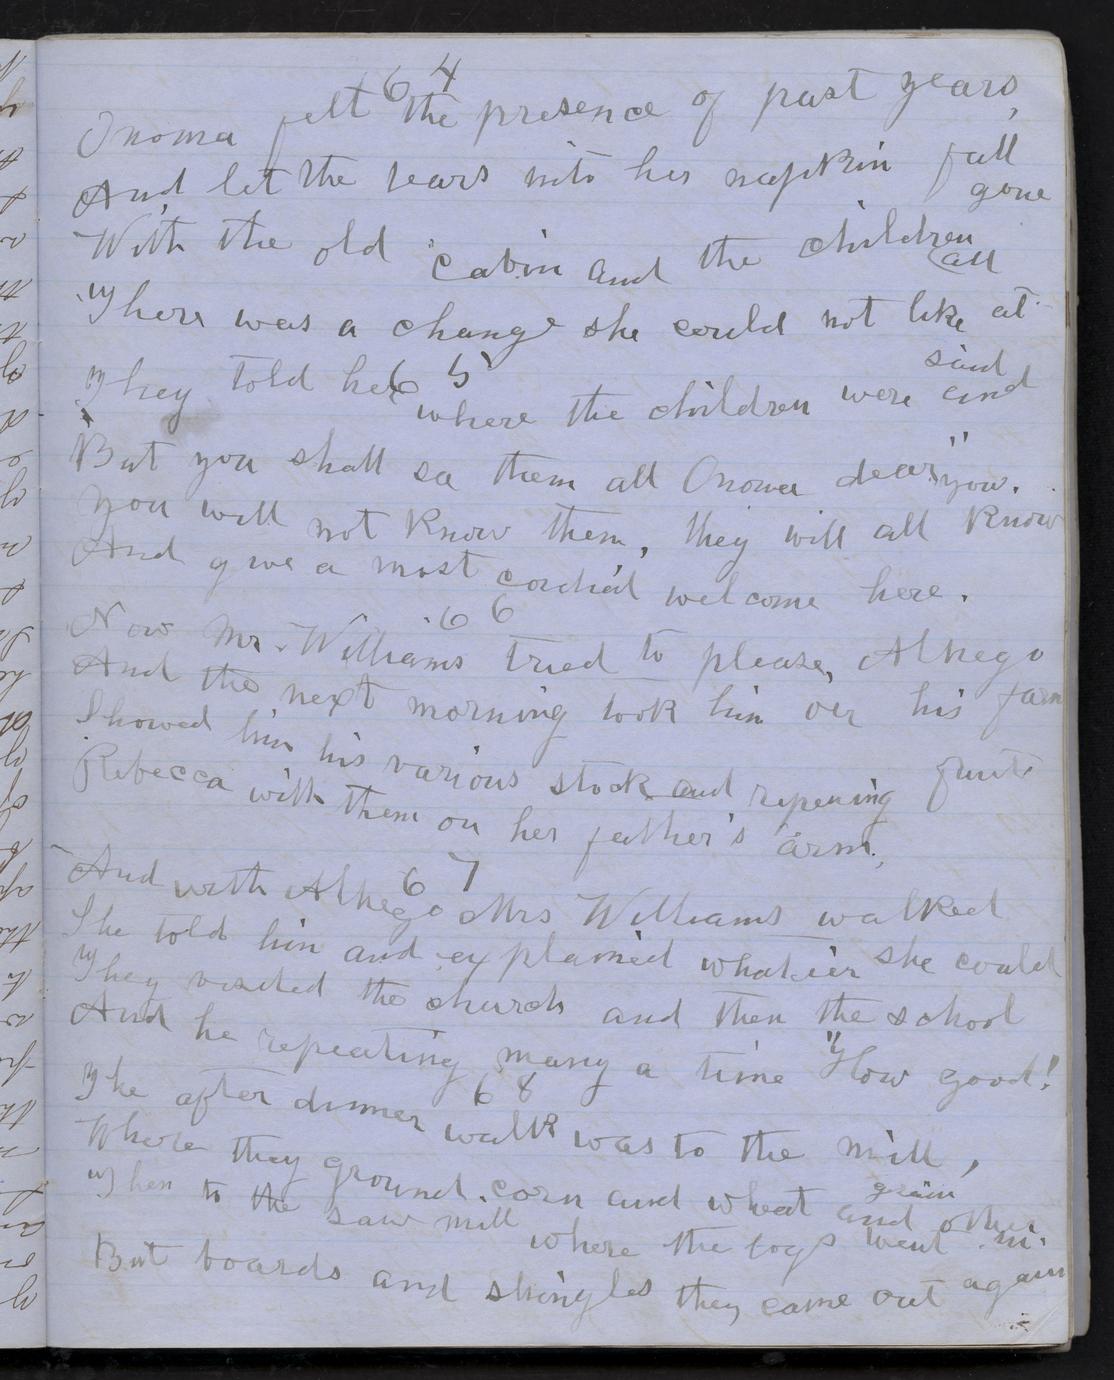 64
Onoma felt the presence of past years,
And let the tears into her napkin fall
With the old cabin and the children gone
There was a change she could not like at all
65
They told her where the children were and said
But you shall se them all Onoma dear"
You will not know them, they will all know you.
And give a most cordial welcome here.
66
Now Mr. Williams tried to please, Alkego
And the next morning took him oer his farm
Showed him his various stock and repening fruit
Rebecca with them on her father's arm,
67
And with Alkego Mrs Williams walked
She told him and explained whate'er she could
They visited the church and then the school
And he repeating many a time "How good!
68
The after dinner walk was to the mill,
Where they ground corn and wheat and other grain
Then to the saw mill where the logs went in.
But boards and shingles they came out again